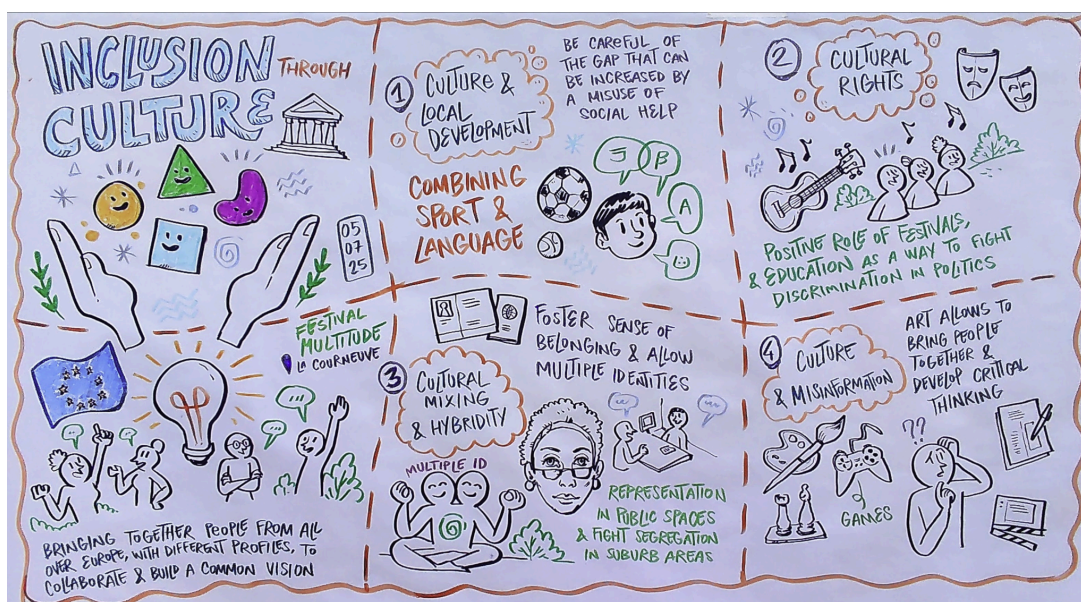 INCLUSION
THROUGH
CULTURE
05
07
25
FESTIVAL
MULTITUDE
LA COURNEUVE
BRINGING TOGETHER PEOPLE FROM ALL
OVER EUROPE, WITH DIFFERENT PROFILES, TO
COLLABORATE & BUILD A COMMON VISION
1
CULTURE &
LOCAL
DEVELOPMENT
BE CAREFUL OF
THE GAP THAT CAN
BE INCREASED BY
A MISUSE OF
SOCIAL HELP
COMBINING
SPORT &
LANGUAGE
B
A
2
CULTURAL
RIGHTS
POSITIVE ROLE OF FESTIVALS,
& EDUCATION AS A WAY TO FIGHT
DISCRIMINATION IN POLITICS
3
CULTURAL
MIXING
& HYBRIDITY
FOSTER SENSE OF
BELONGING & ALLOW
MULTIPLE IDENTITIES
MULTIPLE ID
REPRESENTATION
IN PUBLIC SPACES
& FIGHT SEGREGATION
IN SUBURB AREAS
4
CULTURE
& MISINFORMATION
ART ALLOWS TO
BRING PEOPLE
TOGETHER &
DEVELOP CRITICAL
THINKING
??
GAMES